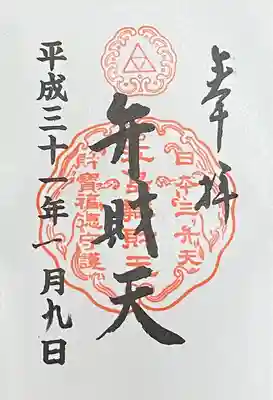 奉拝
日本三弁天
弁財天
財寶福徳守護
平成三十一年一月九日